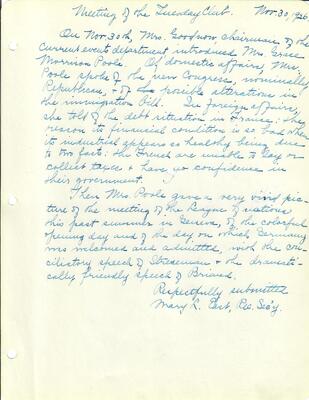 Meeting of the Tuesday Club. Nov. 30, 1926.
On Nov. 30th, Mrs. Goodnow, chairman of the
current events department introduced Mrs. Grace
Morrison Poole. Of domestic affairs, Mrs.
Poole spoke of the new Congress, nominally
Republican, & of possible alterations in
the immigration bill. In foreign affairs,
she told of the debt situation in France: the
reason its financial condition is so bad when
its industrial appears so healthy being due
to two facts: the French are unable to levy or
collect taxes & have no confidence in
their government.
Then Mrs. Poole gave a very vivid pic-
ture of the meeting of the League of Nations
this past summer in Geneva, of the colorful
opening day and of the day on which Germany
was welcomed and admitted, with the con-
ciliatory speech of Streseman & the dramati-
cally friendly speech of Briand.
Respectfully submitted
Mary L. Rec. Sec'y.